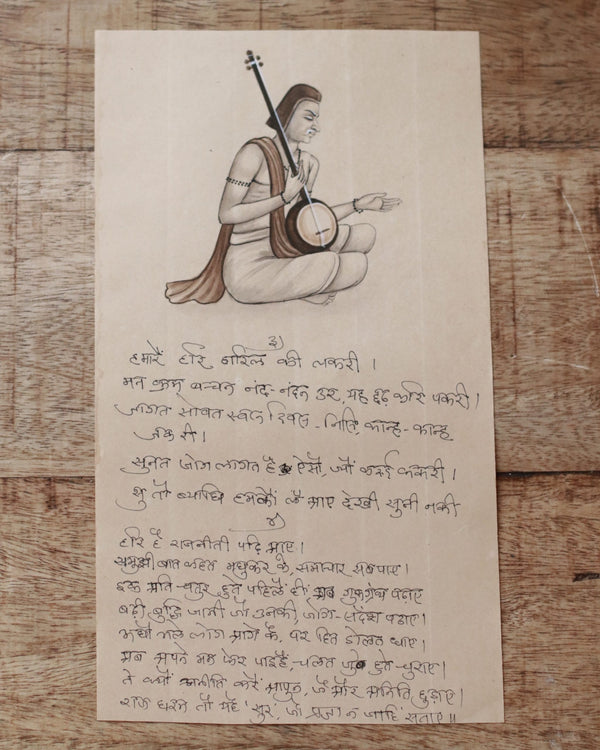 ३)
हमारैं हरि हारिल की लकरी ।
मन क्रम बचन नंद-नंदन उर, यह दृढ़ करि पकरी ।
जागत सोवत स्वप्न दिवस - निसि, कान्ह - कान्ह
जकरी ।
सुनत जोग लागत है ऐसौ, ज्यौं करुई ककरी ।
सु तौ ब्याधि हमकौं लै आए देखी सुनी नकरी
४)
हरि हैं राजनीती पढ़ि आए ।
समुझी बात कहत मधुकर के, समाचार सब पाए ।
इक अति चतुर हुते पहिलैं हीं, अब गुरुग्रंथ पढ़ाए
बढ़ी बुद्धि जानी जो उनकी, जोग-संदेस पठाए ।
ऊधौ भले लोग आगे के, पर हित डोलत धाए ।
अब अपने मन फेर पाइहैं, चलत जु हुते चुराए ।
ते क्यौं अनीति करैं आपुन, जे और अनिति छुड़ाए ।
राज धरम तौ यहै 'सूर', जो प्रजा न जाहिं सताए ॥